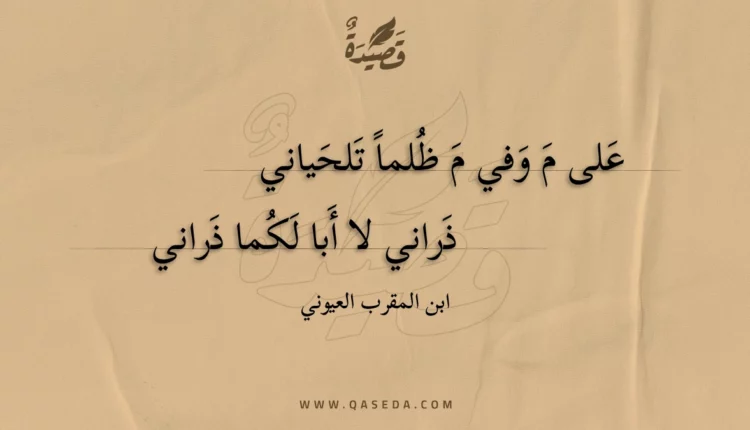 قَصِيدَةٌ
عَلى مَ وَفي مَ ظُلماً تَلحَياني
ذَراني لا أَبا لَكُما ذَراني
ابن المقرب العيوني
WWW.QASEDA.COM